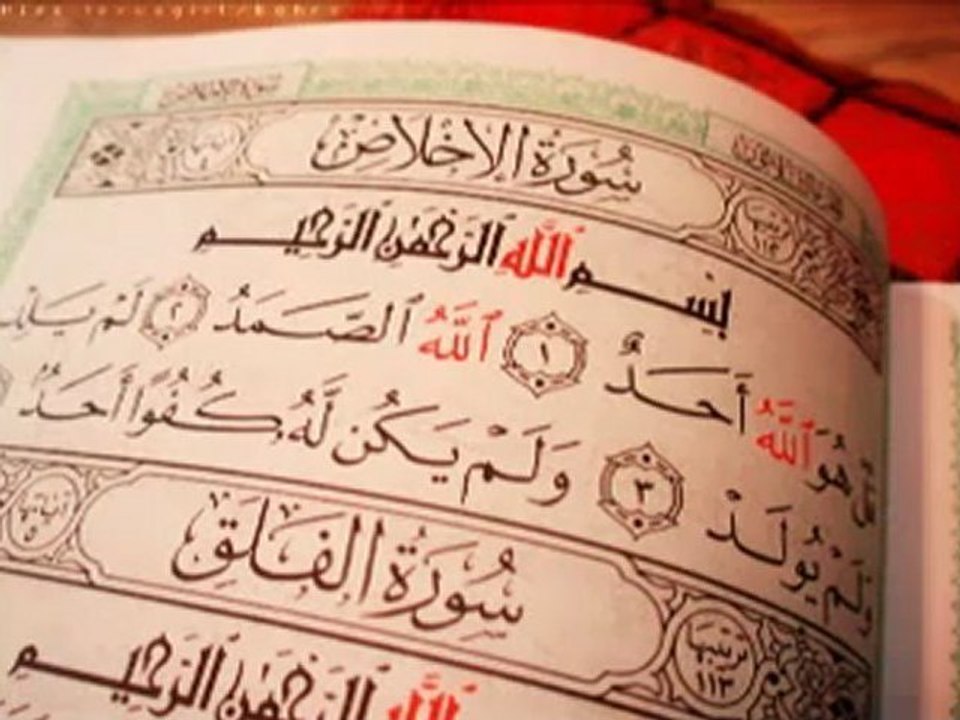 سُورَةُ الإِخْلَاصِ
بِسْمِ اللَّهِ الرَّحْمَٰنِ الرَّحِيمِ
هُوَ ٱللَّهُ أَحَدٌ ١ ٱللَّهُ ٱلصَّمَدُ ٢ لَمْ يَلِدْ
وَلَمْ يُولَدْ ٣ وَلَمْ يَكُن لَّهُۥ كُفُوًا أَحَدٌۢ
سُورَةُ الفَلَقِ
ترتيبها ١١٣
اللَّهِ الرَّحْمَٰنِ الرَّحِيمِ